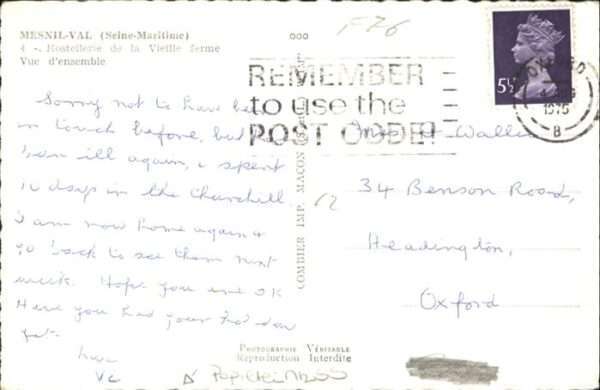 MESNIL-VAL (Seine-Maritime)
4 - Hostellerie de la Vieille ferme
Vue d'ensemble
F76
REMEMBER
to use the
POST CODE!
5½
OXFORD
1975
B
Sorry not to have been
in touch before, but
been ill again, & spent
10 days in the Churchill.
I am now home again &
go back to see them next
week. Hope you are OK
Have you had your holiday
yet.
love
34 Benson Road,
Headington,
Oxford
12
COMBIER IMP. MACON
PHOTOGRAPHIE VÉRITABLE
Reproduction Interdite